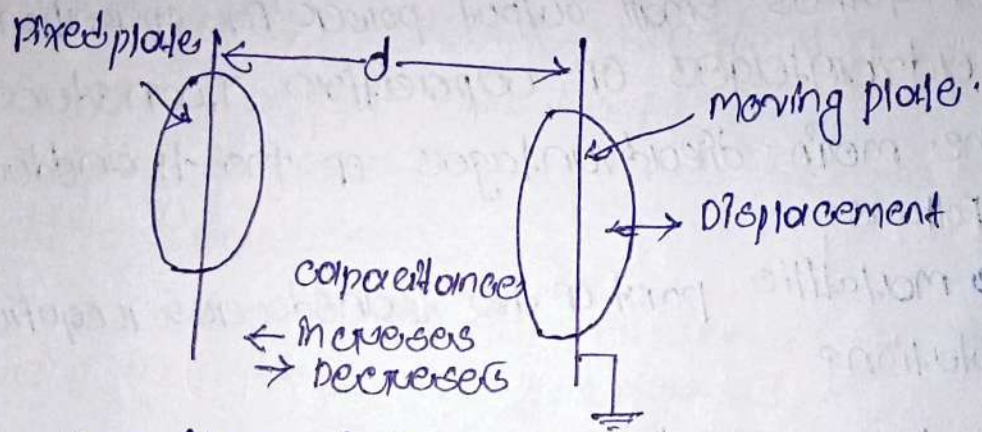 Fixed plate
d
moving plate.
Displacement
capacitance
← increses
→ Decreses